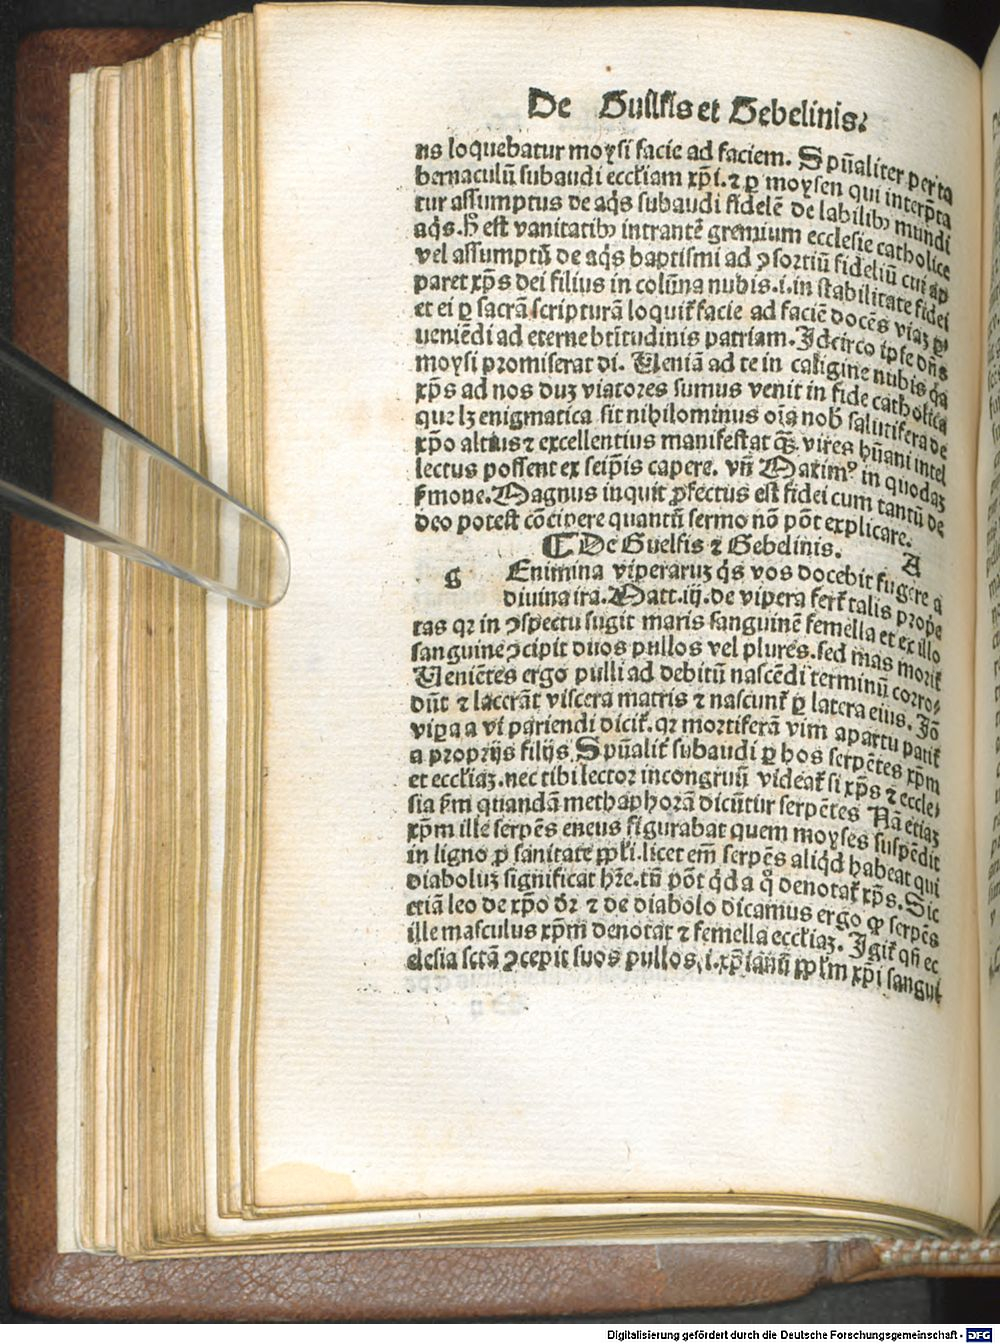 De Guelfis et Gebelinis.
ns loquebatur moysi facie ad faciem. Spūaliter per ta
bernaculū subaudi eccƚiam xp̄i. ⁊ ꝑ moysen qui interp̄ta
tur assumptus de aq̄s subaudi fidelē de labilibꝫ mundi
aq̄s. h̄ est vanitatibꝫ intrantē gremium ecclesie catholice
vel assumptū de aq̄s baptismi ad ꝯsortiū fideliū cui ap
paret xp̄s dei filius in colūna nubis .i. in stabilitate fidei
et ei ꝑ sacrā scripturā loquit᷑ facie ad faciē docēs viaꝫ ꝑ
ueniēdi ad eterne btītudinis patriam. Idcirco ipse dn̄s
moysi promiserat di. Ueniā ad te in caligine nubis q̄a
xp̄s ad nos duꝫ viatores sumus venit in fide catholica
que lꝫ enigmatica sit nihilominus oīa nob̄ salutifera de
xp̄o altius ⁊ excellentius manifestat q̄ꝫ vires hūani intel
lectus possent ex seip̄is capere. vn̄ Maximꝰ in quodaꝫ
ẜmone. Magnus inquit ꝓfectus est fidei cum tantū de
deo potest cōcipere quantū sermo nō pōt explicare.
¶ De Guelfis ⁊ Gebelinis. A
g Enimina viperaruꝫ q̄s vos docebit fugere a
diuina ira. Matt. iij. de vipera fert᷑ talis prop̄e
tas qꝛ in ꝯspectu sugit maris sanguinē femella et ex illo
sanguine ꝯcipit duos pullos vel plures. sed mas morit᷑
Ueniētes ergo pulli ad debitū nascēdi terminū corro⸗
dūt ⁊ lacerāt viscera matris ⁊ nascunt᷑ ꝑ latera eius. Iō
viꝑa a vi pariendi dicit᷑. qꝛ mortiferā vim a partu patit᷑
a proprijs filijs Spūalit᷑ subaudi ꝑ hos serpētes xp̄m
et eccƚiaꝫ. nec tibi lector incongruū videat᷑ si xp̄s ⁊ eccle⸗
sia ẜm quandā methaphorā dicūtur serpētes Nā etiaꝫ
xp̄m ille serpēs eneus figurabat quem moyses suspēdit
in ligno ꝓ sanitate ppƚi. licet em̄ serpēs aliq̇d habeat qui
diaboluꝫ significat hr̄e. tn̄ pōt q̇d a qͦ denotat᷑ xp̄s. Sic
etiā leo de xp̄o dr̄ ⁊ de diabolo dicamus ergo ꝙ serpēs
ille masculus xp̄m denotat ⁊ femella eccƚiaꝫ. Igit᷑ qn̄ ec
clesia scta ꝯcepit suos pullos .i. xp̄ianū ppƚm xp̄i sangui
Digitalisierung gefördert durch die Deutsche Forschungsgemeinschaft - DFG